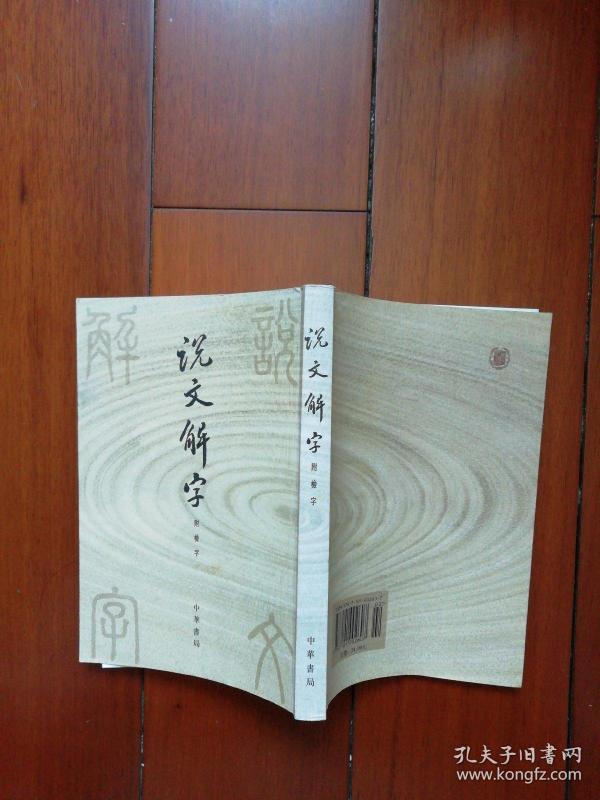 说文解字
附检字
中華書局
解
說
字
文
说文解字
附檢字
中華書局
孔夫子旧書网
www.kongfz.com